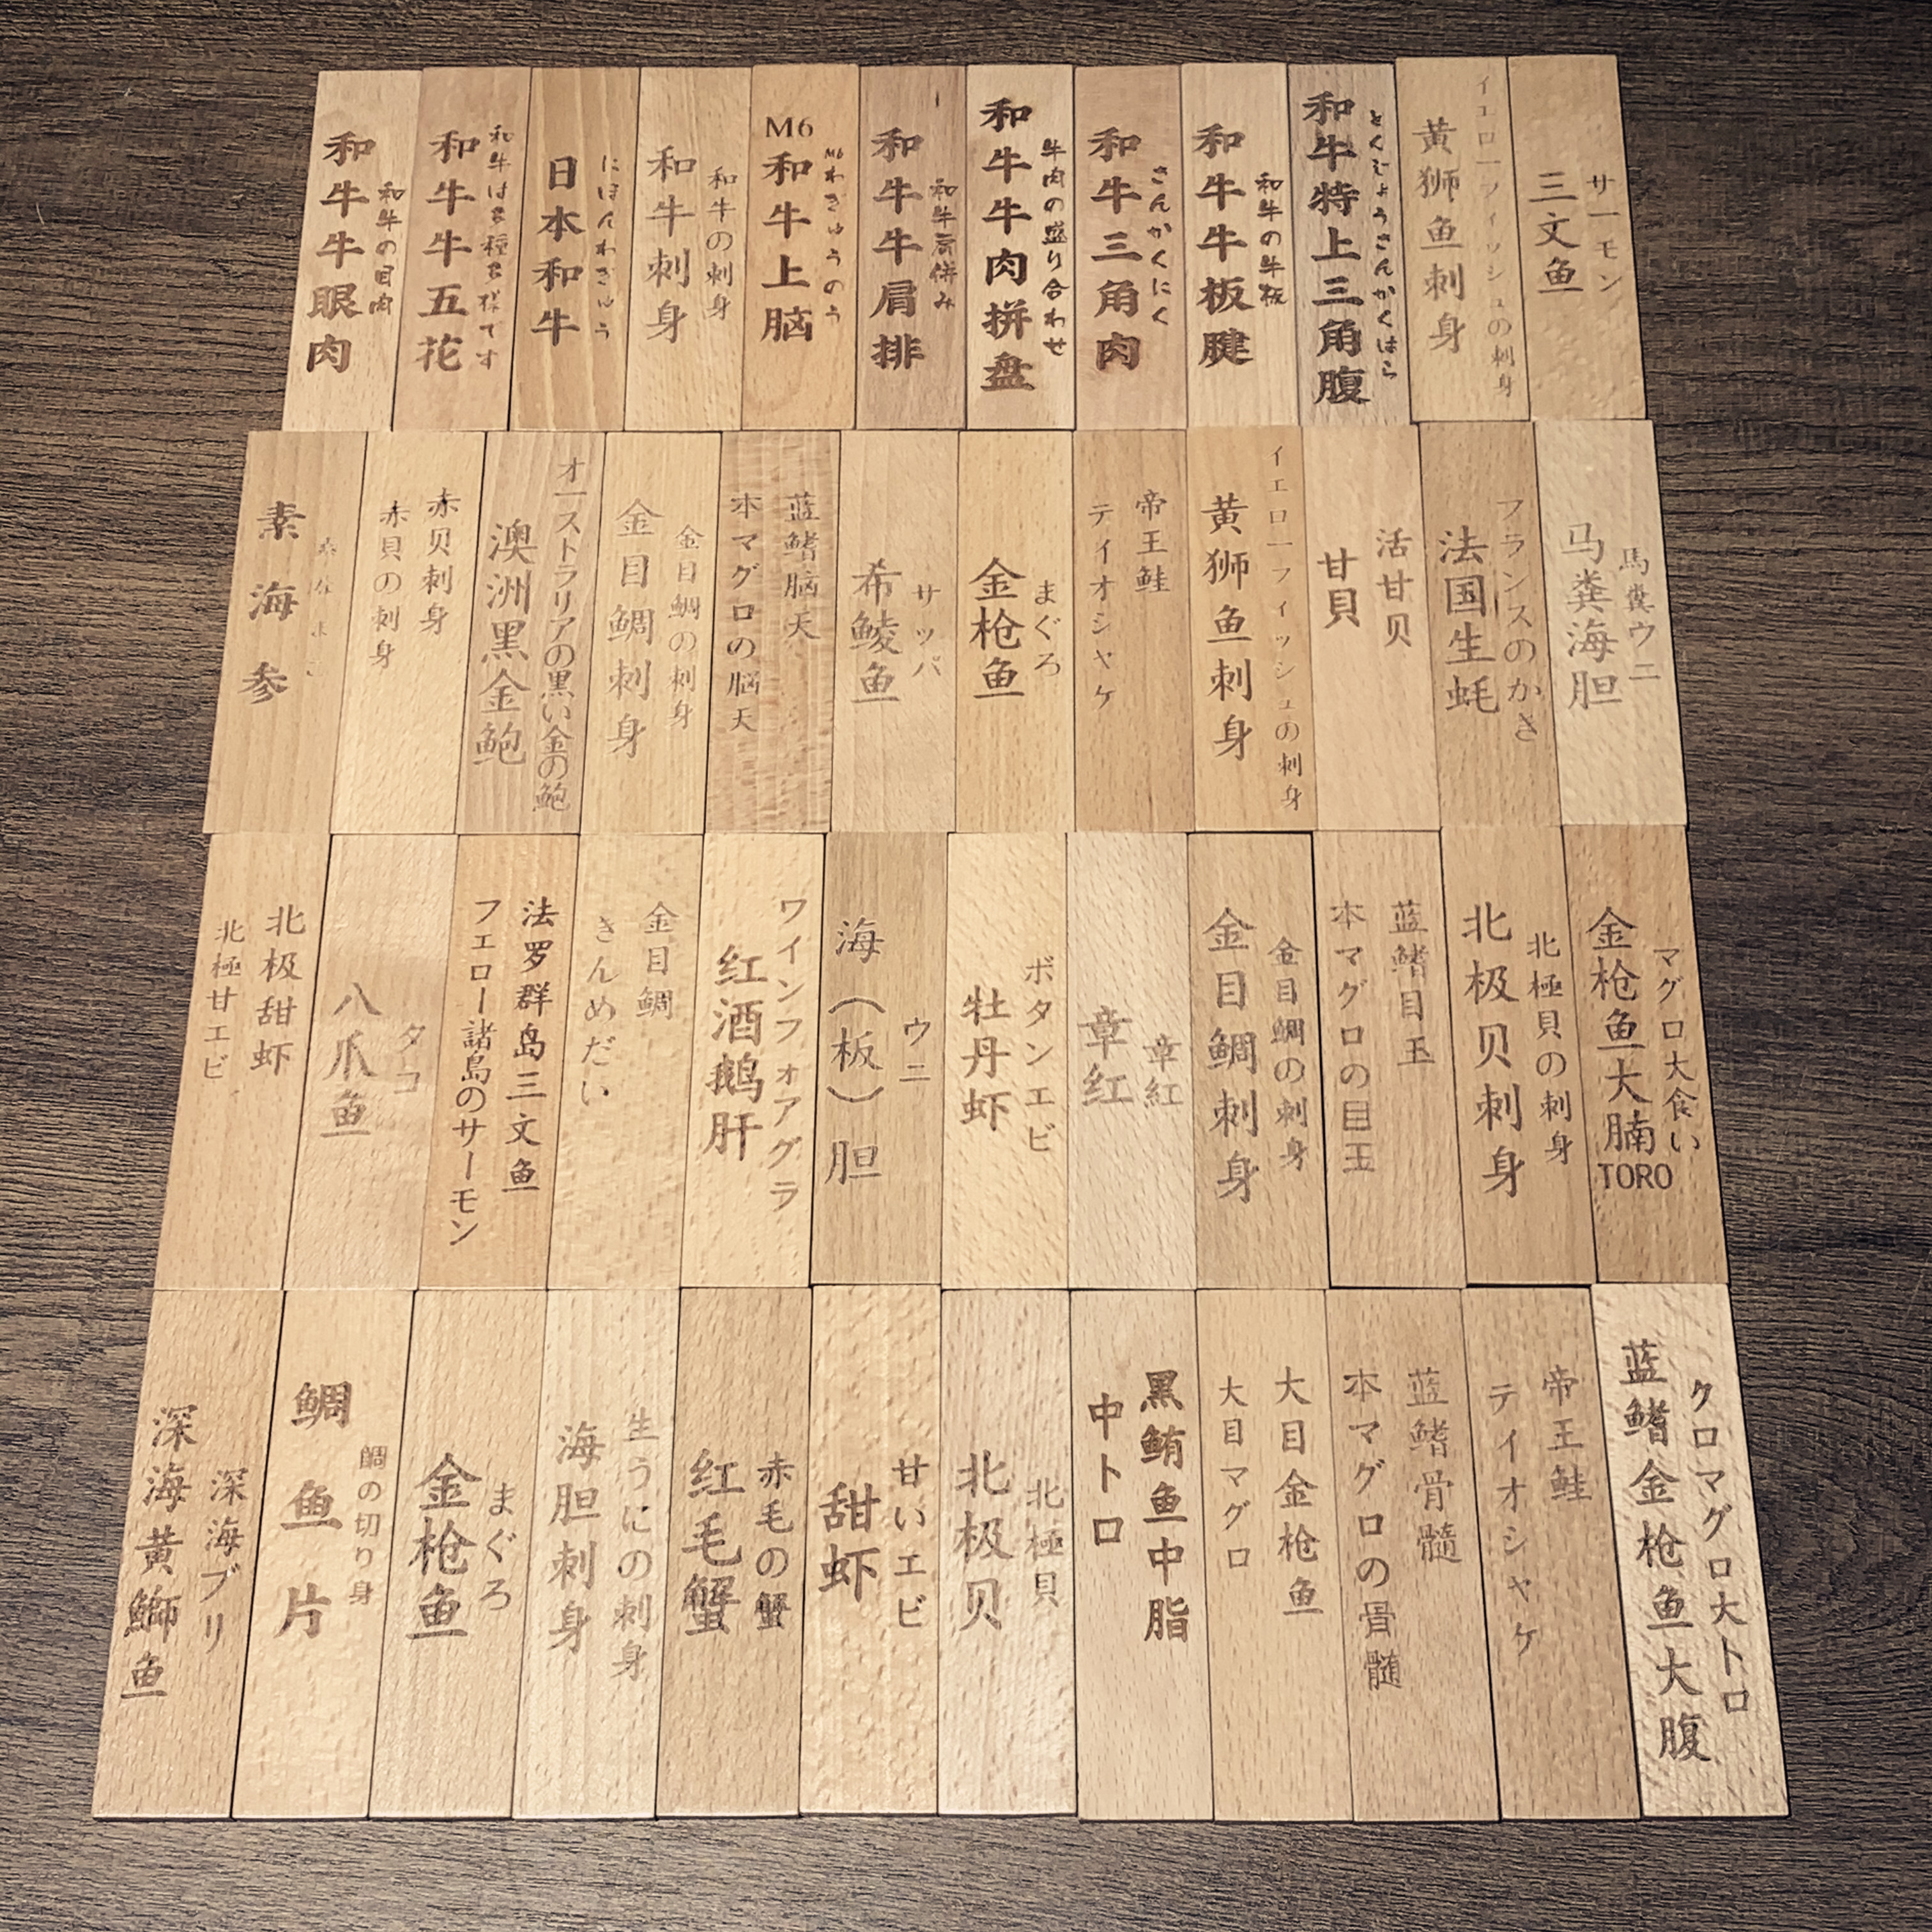 和牛牛眼肉
和牛の目肉
和牛牛五花
和牛は多種多様です
日本和牛
にほんわぎゅう
和牛刺身
和牛の刺身
M6和牛上脑
M6わぎゅうのう
和牛牛肩排
和牛肩併み
和牛牛肉拼盘
牛肉の盛り合わせ
和牛三角肉
さんかくにく
和牛牛板腱
和牛の牛板
和牛特上三角腹
とくじょうさんかくはら
黄狮鱼刺身
イエローフィッシュの刺身
三文鱼
サーモン
素海参
赤贝刺身
赤貝の刺身
澳洲黑金鲍
オーストラリアの黒い金の鮑
金目鲷刺身
金目鯛の刺身
蓝鳍脑天
本マグロの脳天
希鲮鱼
サッパ
金枪鱼
まぐろ
帝王鮭
テイオシャケ
黄狮鱼刺身
イエローフィッシュの刺身
活甘贝
甘貝
法国生蚝
フランスのかき
马粪海胆
馬糞ウニ
北极甜虾
北極甘エビ
八爪鱼
タコ
法罗群岛三文鱼
フェロー諸島のサーモン
金目鲷
きんめだい
红酒鹅肝
ワインフォアグラ
海（板）胆
ウニ
牡丹虾
ボタンエビ
章红
章紅
金目鲷刺身
金目鯛の刺身
蓝鳍目玉
本マグロの目玉
北极贝刺身
北極貝の刺身
金枪鱼大腩TORO
マグロ大食い
深海黄鰤鱼
深海ブリ
鲷鱼片
鯛の切り身
金枪鱼
まぐろ
海胆刺身
生うにの刺身
红毛蟹
赤毛の蟹
甜虾
甘いエビ
北极贝
北極貝
黑鲔鱼中脂
中トロ
大目金枪鱼
大目マグロ
蓝鳍骨髓
本マグロの骨髄
帝王鮭
テイオシャケ
蓝鳍金枪鱼大腹
クロマグロ大トロ